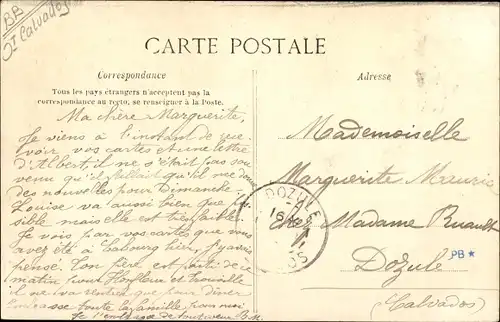 BB
St Calvados
CARTE POSTALE
Correspondance
Adresse
Tous les pays étrangers n'acceptent pas la
correspondance au recto, se renseigner à la Poste.
Ma chère Marguerite,
Je viens à l'instant de rece-
voir vos cartes et une lettre
d'Albert, il ne s'était pas sou
venu qu'il fallait qu'il me donne
des nouvelles pour Dimanche.
Louise va aussi bien que pos
sible mais elle est très faible.
Je vois par vos cartes que vous
avez été à Cabourg hier, j'y avais
pensé. Ton père est parti de ce
matin pour Honfleur et Trouville
il ne va rentrer que pour diner
toute la famille, pour moi
je
Mademoiselle
Marguerite Maurice
Chez Madame Ruault
Dozulé
(Calvados)
DOZULÉ
PB *